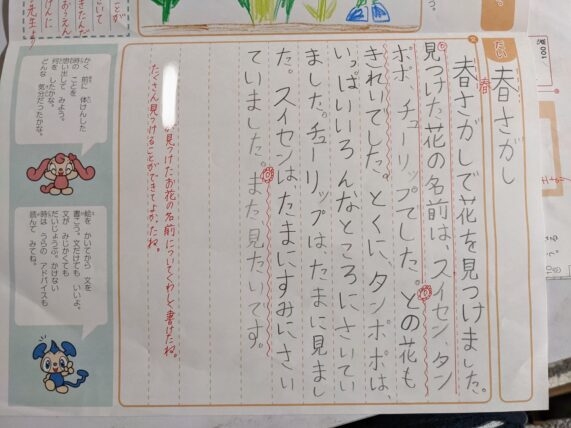 だい
春さがし
春さがしで花を見つけました。
春
見つけた花の名前は、スイセン、タン
ポポ、チューリップでした。との花も
きれいでした。とくに、タンポポは、
いっぱいいろんなところにさいてい
ました。チューリップはたまに見まし
た。スイセンは、たまにすみにさい
ていました。また見たいです。
見つけたお花の名前についてくわしく書けたね。
たくさん見つけることができてよかったね。
かく 前に 体けんした
時の ことを
思い出して みよう。
何を したかな。
どんな 気分だったかな。
絵を かいてから 文を
書こう。文だけでも いいよ。
文が みじかくても
だいじょうぶ。かけない
時は うらの アドバイスも
読んで みてね。